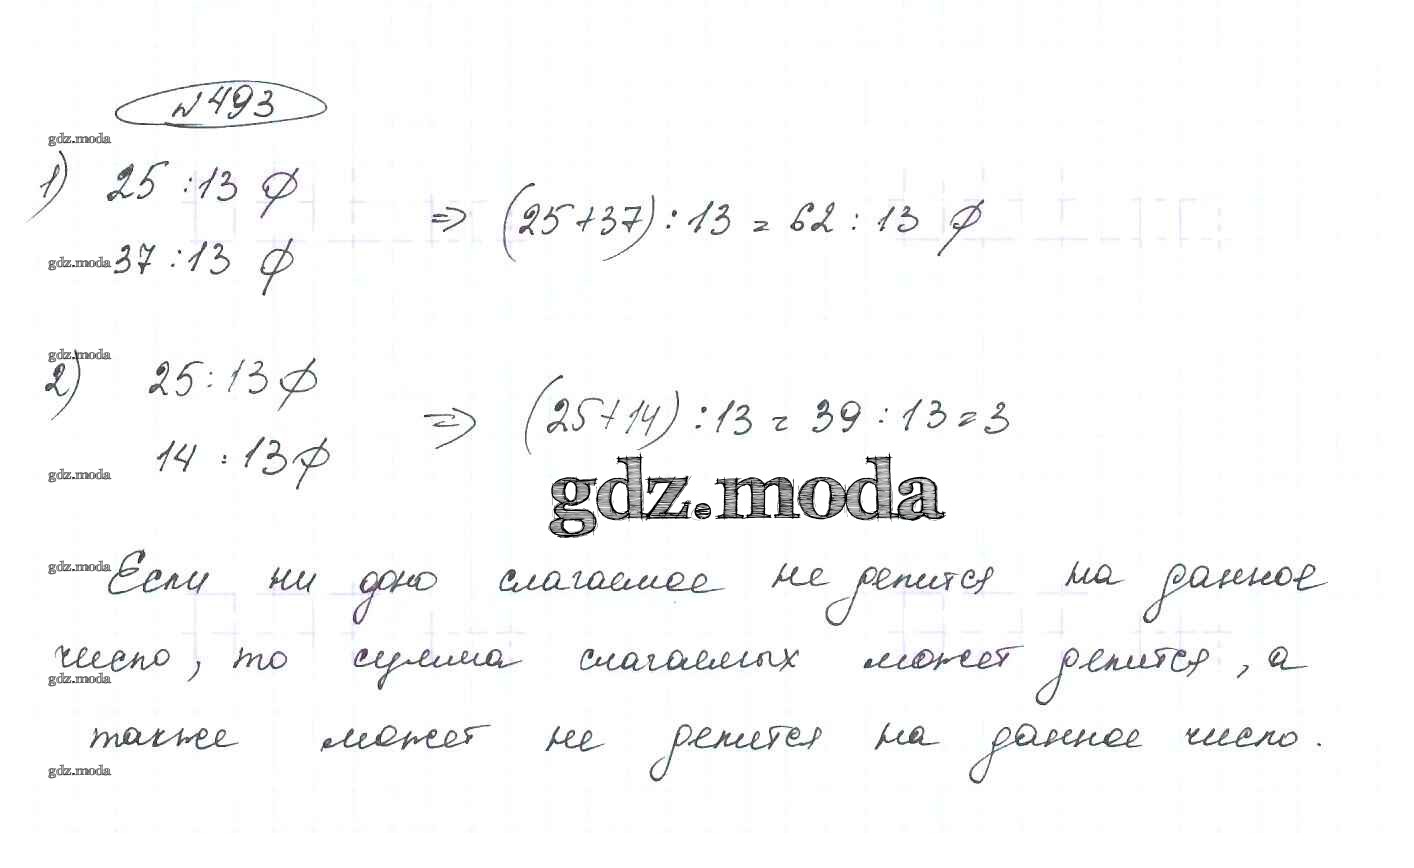 №493
gdz.moda
1) 25 : 13 ∅
gdz.moda 37 : 13 ∅
⇒ (25+37) : 13 = 62 : 13 ∅
gdz.moda
2) 25 : 13 ∅
gdz.moda 14 : 13 ∅
⇒ (25+14) : 13 = 39 : 13 = 3
gdz.moda
gdz.moda Если ни одно слагаемое не делится на данное
число, то сумма слагаемых может делится, а
gdz.moda
также может не делится на данное число.
gdz.moda